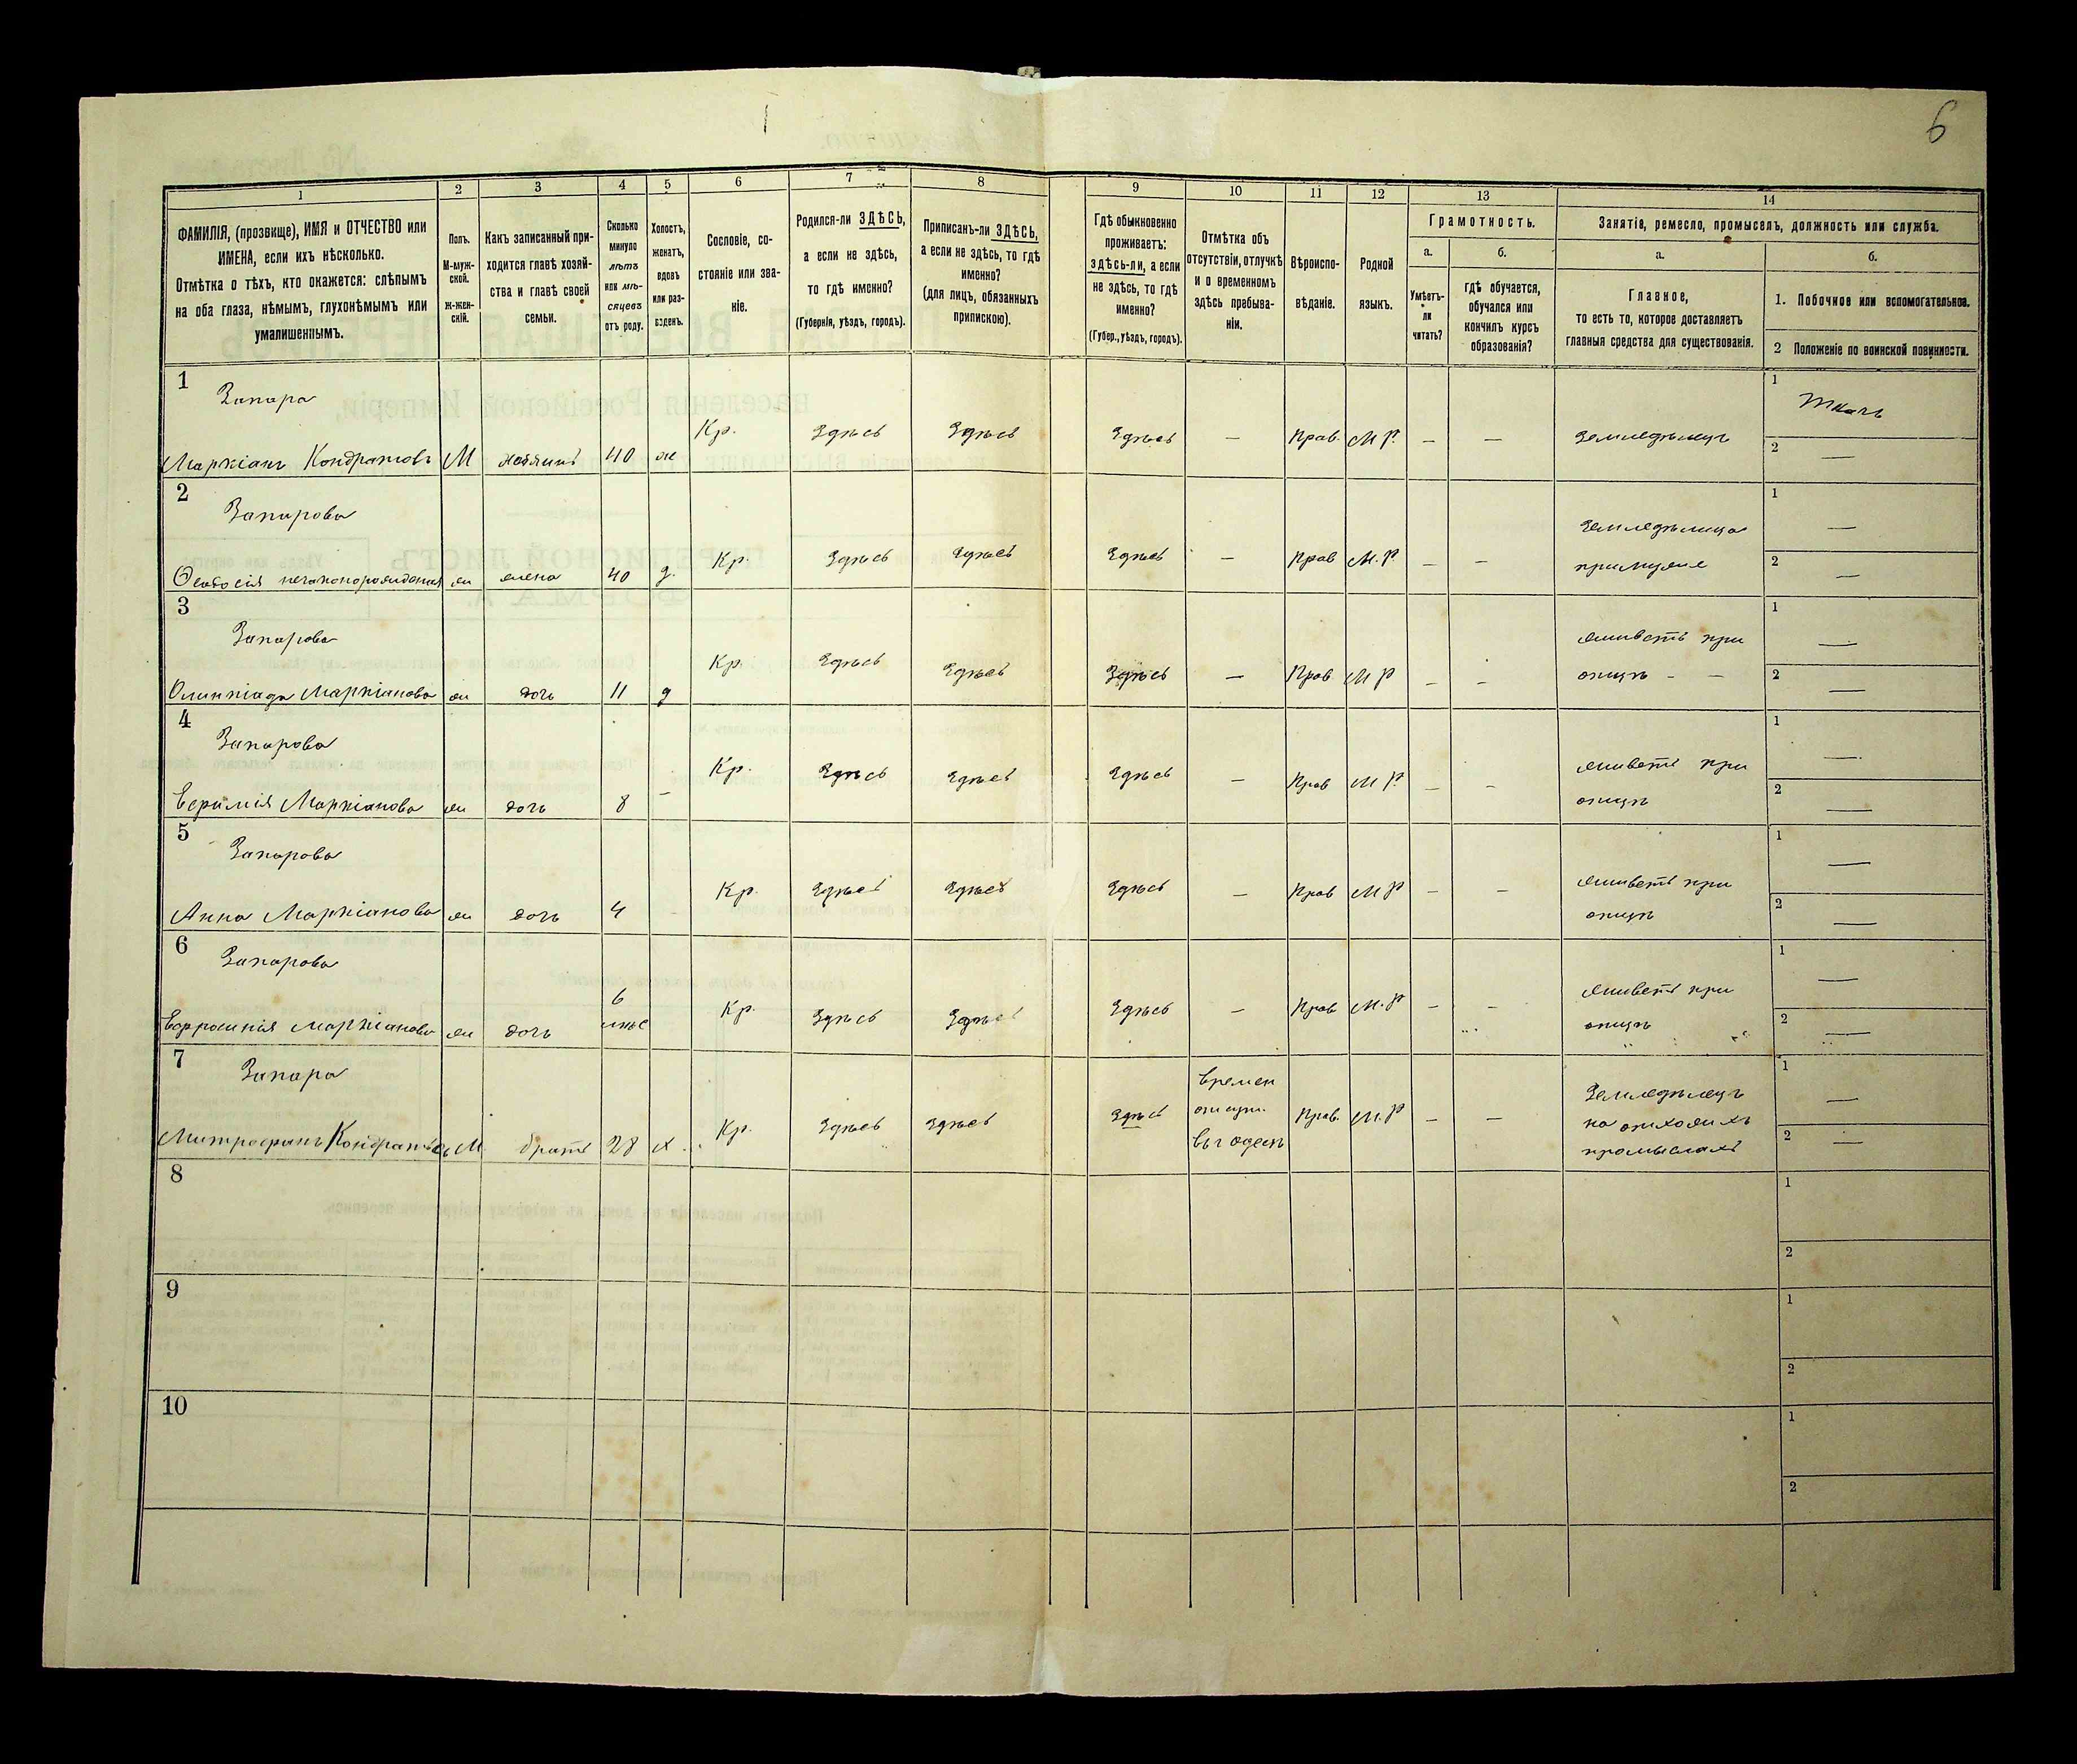 6
1 2 3 4 5 6 7 8 9 10 11 12 13 14
ФАМИЛІЯ, (прозвище), ИМЯ и ОТЧЕСТВО или
ИМЕНА, если ихъ нѣсколько.
Отмѣтка о тѣхъ, кто окажется: слѣпымъ
на оба глаза, нѣмымъ, глухонѣмымъ или
умалишеннымъ.
Полъ.
М-муж-
ской.
ж-жен-
скій.
Какъ записанный при-
ходится главѣ хозяй-
ства и главѣ своей
семьи.
Сколько
минуло
лѣтъ
или мѣ-
сяцевъ
отъ роду.
Холостъ,
женатъ,
вдовъ
или раз-
веденъ.
Сословіе, со-
стояніе или зва-
ніе.
Родился-ли ЗДѢСЬ,
а если не здѣсь,
то гдѣ именно?
(Губернія, уѣздъ, городъ).
Приписанъ-ли ЗДѢСЬ,
а если не здѣсь, то гдѣ
именно?
(для лицъ, обязанныхъ
припискою).
Гдѣ обыкновенно
проживаетъ:
здѣсь-ли, а если
не здѣсь, то гдѣ
именно?
(Губер., уѣздъ, городъ).
Отмѣтка объ
отсутствіи, отлучкѣ
и о временномъ
здѣсь пребыва-
ніи.
Вѣроиспо-
вѣданіе.
Родной
языкъ.
Грамотность.
а.
Умѣетъ-
ли
читать?
б.
гдѣ обучается,
обучался или
кончилъ курсъ
образованія?
Занятіе, ремесло, промыселъ, должность или служба.
а.
Главное,
то есть то, которое доставляетъ
главныя средства для существованія.
б.
1. Побочное или вспомогательное.
2 Положеніе по воинской повинности.
1
Запара
Маркіанъ Кондратовъ М хозяинъ 40 ж Кр. Здѣсь Здѣсь Здѣсь — Прав. М Р. — — Земледѣлецъ
1 Ткачъ
2 —
2
Запарова
Феодосія незаконорожденная ж жена 40 з. Кр. Здѣсь Здѣсь Здѣсь — Прав М. Р. — —
Земледѣлица
при мужѣ
1 —
2 —
3
Запарова
Олимпіада Маркіанова ж дочь 11 д Кр. Здѣсь Здѣсь Здѣсь — Прав М Р — —
живетъ при
отцѣ — —
1 —
2 —
4
Запарова
Маркіанова ж дочь 8 — Кр. Здѣсь Здѣсь Здѣсь — Прав М Р. — —
живетъ при
отцѣ
1 —
2 —
5
Запарова
Анна Маркіанова ж дочь 4 Кр. Здѣсь Здѣсь Здѣсь — Прав М Р — —
живетъ при
отцѣ
1 —
2 —
6
Запарова
Маркіанова ж дочь 6 Кр. Здѣсь Здѣсь Здѣсь — Прав М. Р — —
живетъ при
отцѣ
1 —
2 —
7
Запара
Митрофанъ Кондратовъ М братъ 28 х. Кр. Здѣсь Здѣсь Здѣсь
времен
отлуч.
Прав. М. Р — —
Земледѣлецъ
на отхожихъ
промыслахъ
1 —
2 —
8
1
2
9
1
2
10
1
2